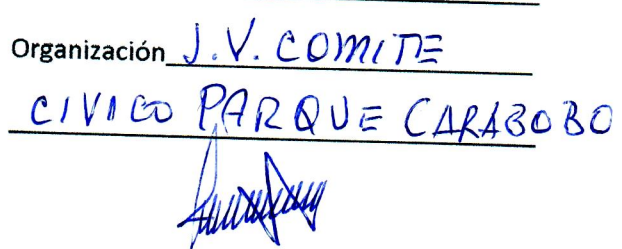 Organización J.V. COMITE
CIVICO PARQUE CARABOBO